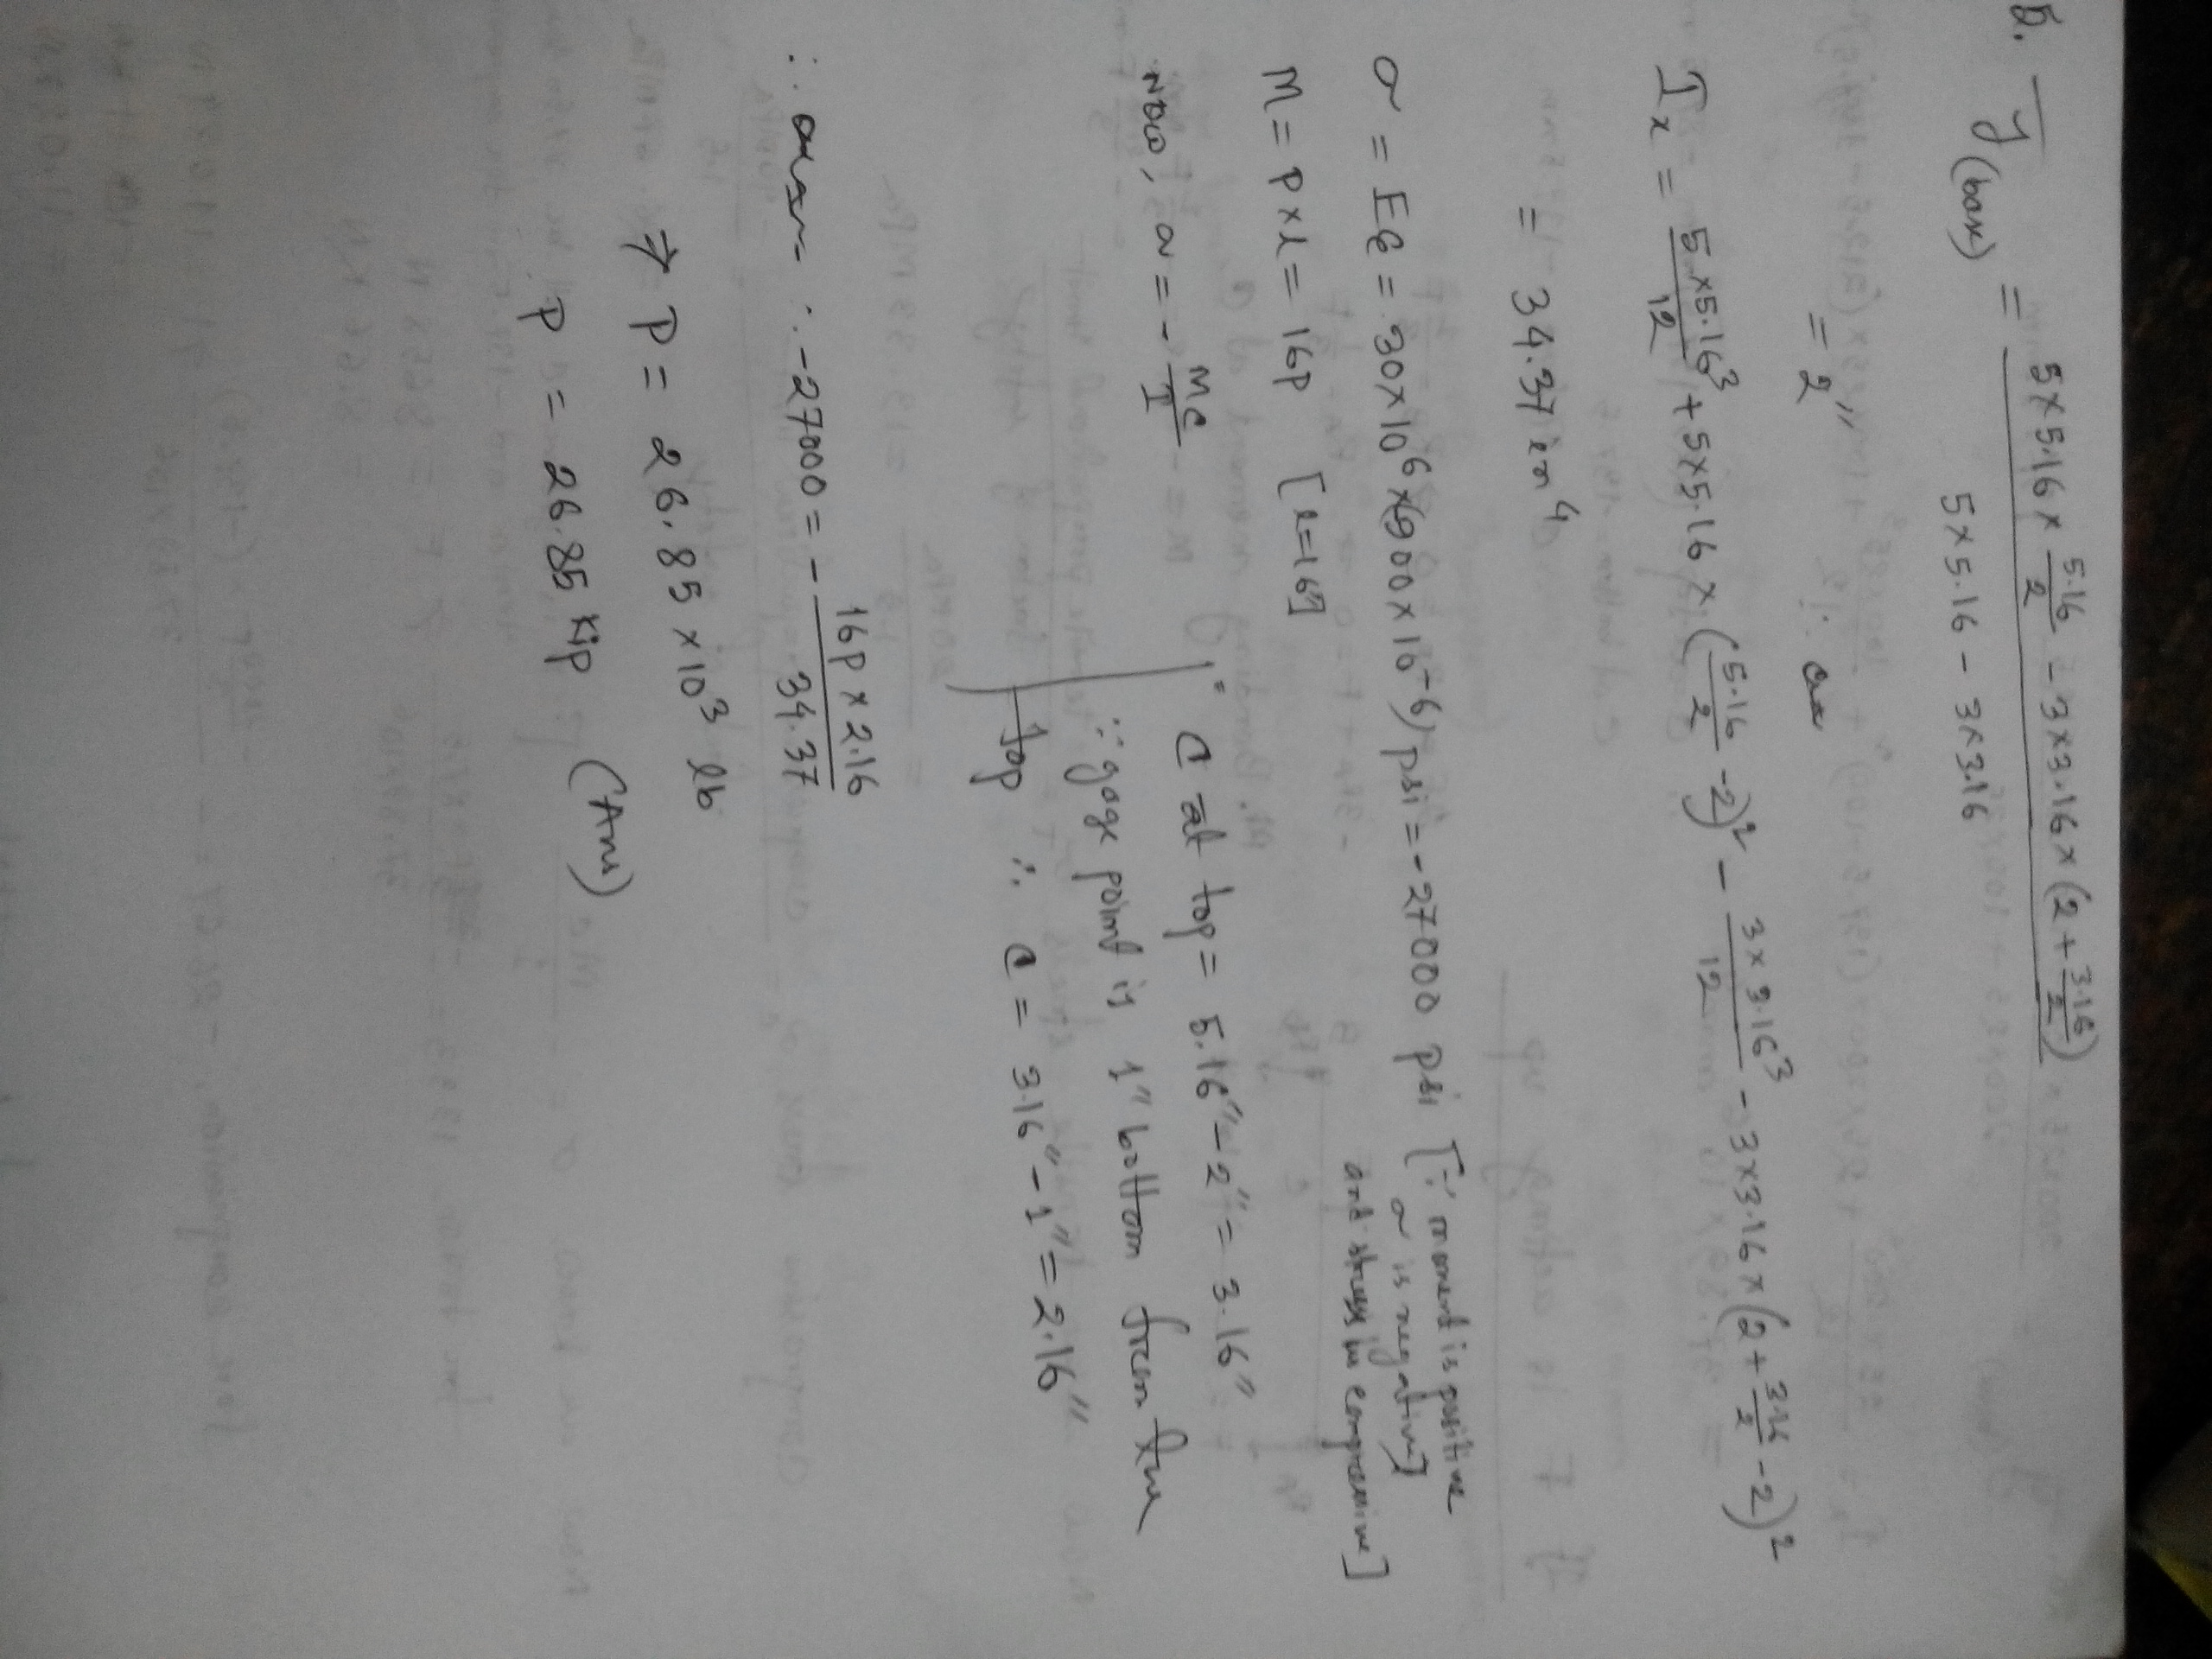 5. ȳ(box) = (5×5.16×5.16/2 - 3×3.16×(2+3.16/2)) / (5×5.16 - 3×3.16)
= 2"
I_x = 5×5.16³/12 + 5×5.16×(5.16/2 -2)² - 3×3.16³/12 - 3×3.16×(2+3.16/2 -2)²
= 34.37 in⁴
σ = Eε = 30×10⁶×(900×10⁻⁶) psi = -27000 psi [∵ moment is positive
σ is negative]
and stress is compressive]
M = P×l = 16P [l=16"]
Now, σ = - Mc/I
c at top = 5.16" - 2" = 3.16"
∵ gage point is 1" bottom from the
top ∴ c = 3.16" - 1" = 2.16"
∴ -27000 = - 16P × 2.16 / 34.37
⇒ P = 26.85 × 10³ lb
P = 26.85 kip (Ans)